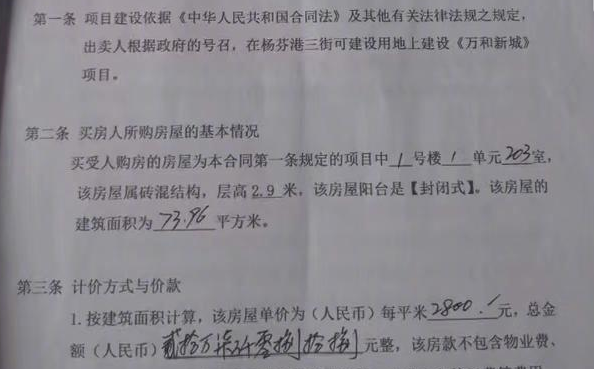 第一条 项目建设依据《中华人民共和国合同法》及其他有关法律法规之规定，
出卖人根据政府的号召，在杨芬港三街可建设用地上建设《万和新城》
项目。
第二条 买房人所购房屋的基本情况
买受人购房的房屋为本合同第一条规定的项目中 1 号楼 1 单元 203 室，
该房屋属砖混结构，层高 2.9 米，该房屋阳台是【封闭式】。该房屋的
建筑面积为 73.96 平方米。
第三条 计价方式与价款
1.按建筑面积计算，该房屋单价为（人民币）每平米 2800 元，总金
额（人民币）贰拾万柒仟零捌拾捌元整，该房款不包含物业费、